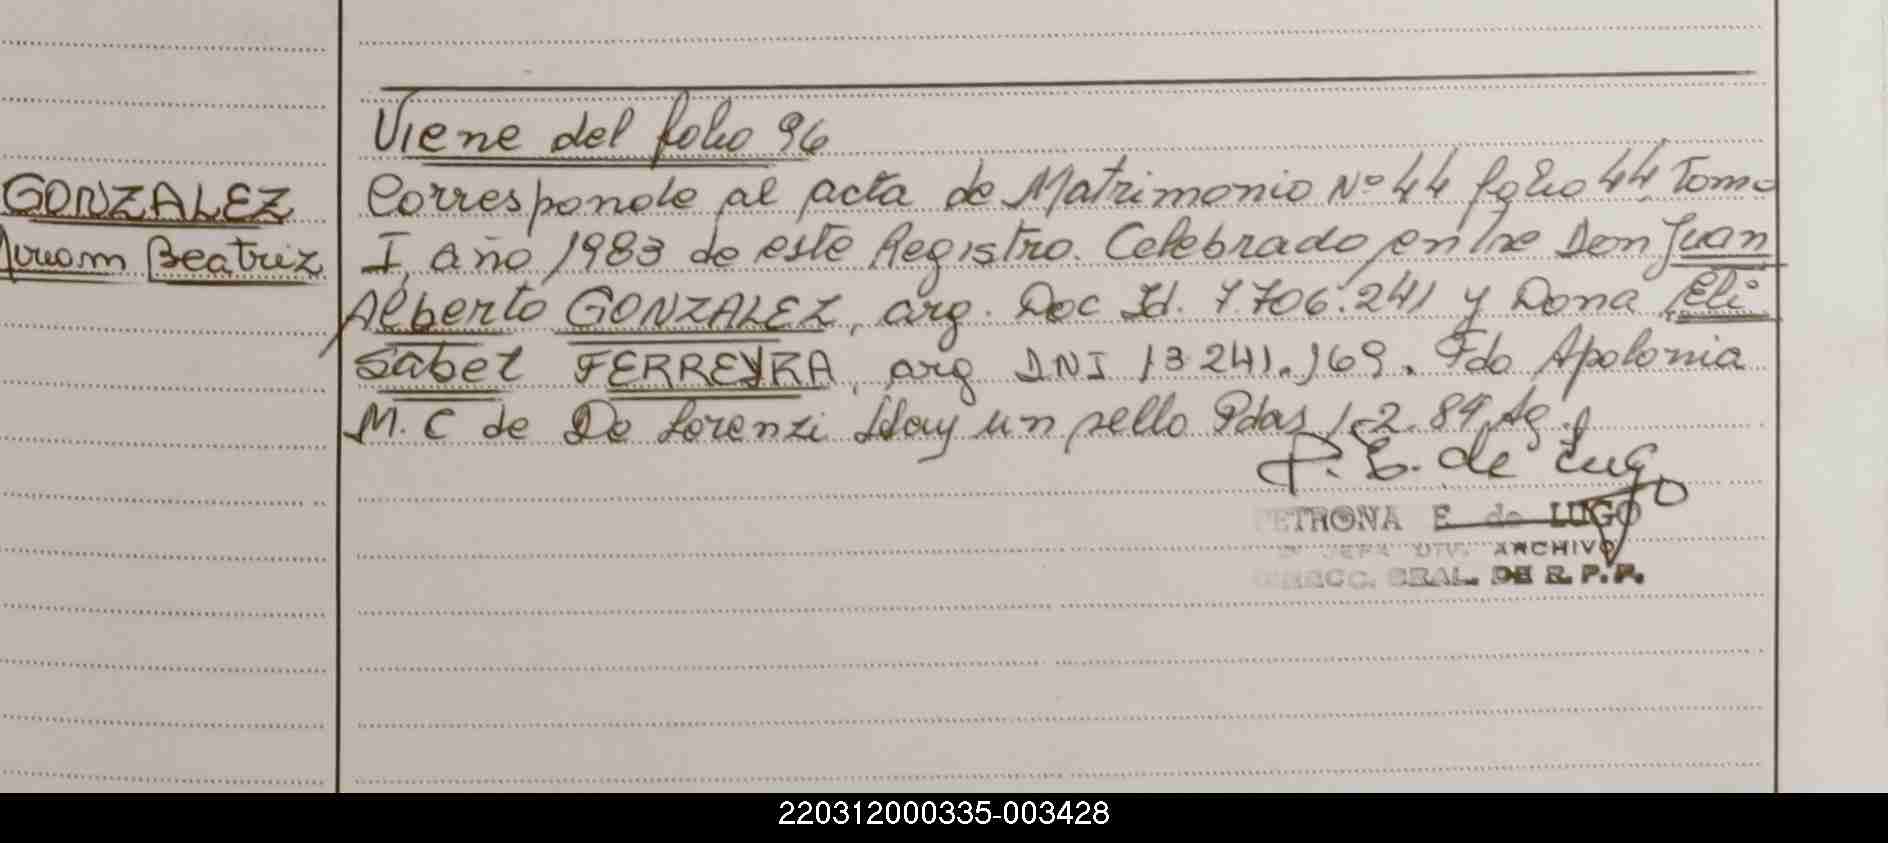 Viene del folio 96
GONZALEZ
Miriam Beatriz
Corresponde al acta de Matrimonio Nº 44 folio 44, Tomo
I, año 1983 de este Registro. Celebrado entre Don Juan
Alberto GONZALEZ, arg. Doc Id. 7.706.241 y Dona Eli
sabet FERREYRA, arg DNI 13.241.169. Fdo Apolonia
M. C de De Lorenzi Hay un sello Pdas 1-2.84 Ag.
P. E. de Lugo
PETRONA E. de LUGO
JEFA DIV. ARCHIVO
DIRECC. GRAL. DE R. P. P.
220312000335-003428